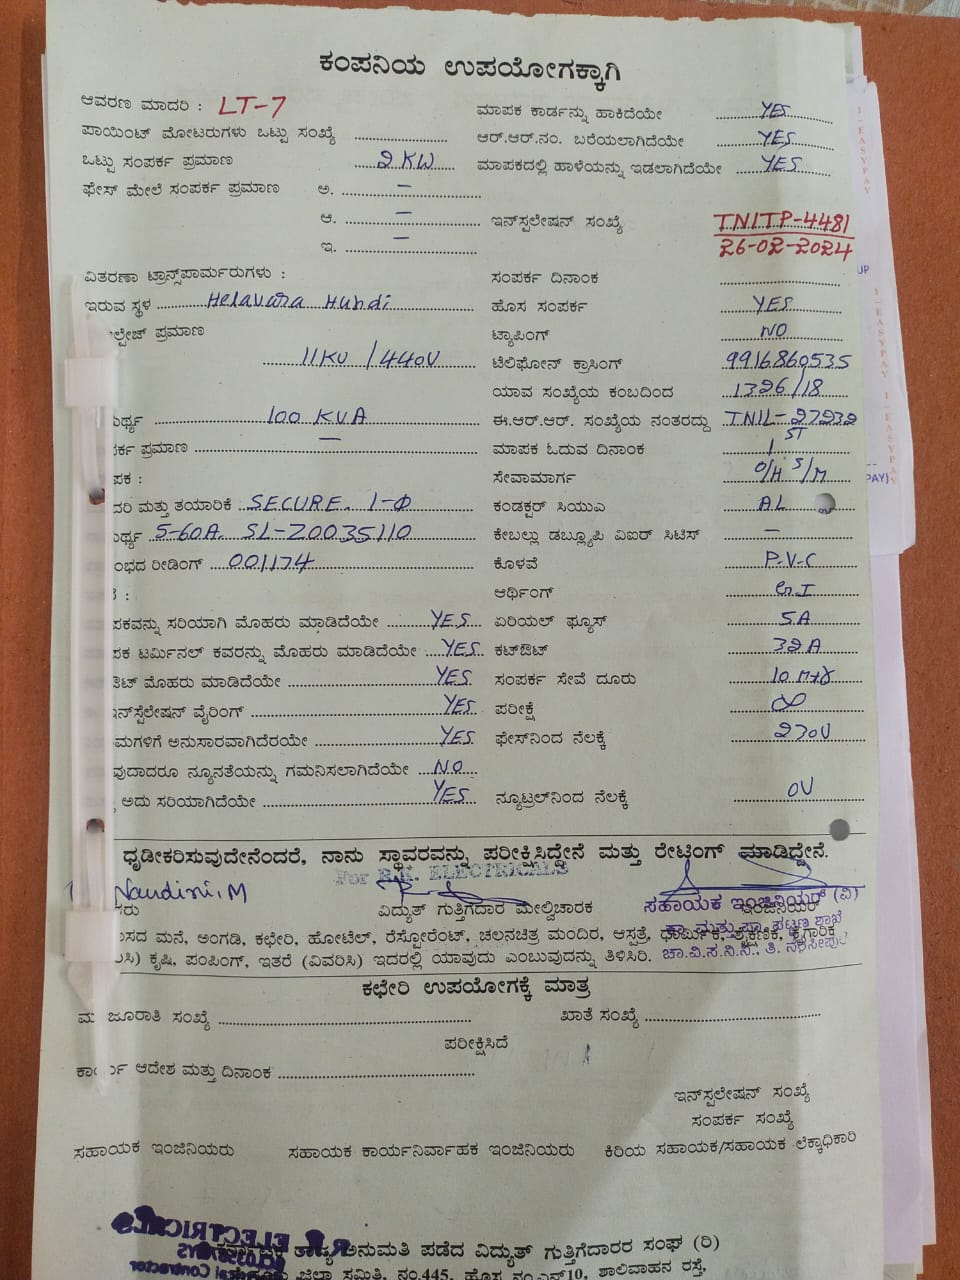 ಕಂಪನಿಯ ಉಪಯೋಗಕ್ಕಾಗಿ
ಆವರಣ ಮಾದರಿ : LT-7 ಮಾಪಕ ಕಾರ್ಡನ್ನು ಹಾಕಿದೆಯೇ YES
ಪಾಯಿಂಟ್ ಮೋಟರುಗಳು ಒಟ್ಟು ಸಂಖ್ಯೆ ಆರ್.ಆರ್.ನಂ. ಬರೆಯಲಾಗಿದೆಯೇ YES
ಒಟ್ಟು ಸಂಪರ್ಕ ಪ್ರಮಾಣ 2 KW ಮಾಪಕದಲ್ಲಿ ಹಾಳೆಯನ್ನು ಇಡಲಾಗಿದೆಯೇ YES
ಫೇಸ್ ಮೇಲೆ ಸಂಪರ್ಕ ಪ್ರಮಾಣ ಅ. –
ಆ. – ಇನ್‌ಸ್ಪಲೇಷನ್ ಸಂಖ್ಯೆ TNITP-4481
ಇ. – 26-02-2024
ವಿತರಣಾ ಟ್ರಾನ್ಸ್‌ಪಾರ್ಮರುಗಳು : ಸಂಪರ್ಕ ದಿನಾಂಕ
ಇರುವ ಸ್ಥಳ Helavara Hundi ಹೊಸ ಸಂಪರ್ಕ YES
ಲ್ಟೇಜ್ ಪ್ರಮಾಣ ಟ್ಯಾಪಿಂಗ್ NO
11KV / 440V ಟೆಲಿಫೋನ್ ಕ್ರಾಸಿಂಗ್ 9916860535
ಯಾವ ಸಂಖ್ಯೆಯ ಕಂಬದಿಂದ 1326/18
ರ್ಥ್ಯ 100 KVA ಈ.ಆರ್.ಆರ್. ಸಂಖ್ಯೆಯ ನಂತರದ್ದು TNIL-27232
ರ್ಕ ಪ್ರಮಾಣ – ಮಾಪಕ ಓದುವ ದಿನಾಂಕ 1 ST
ಪಕ : ಸೇವಾಮಾರ್ಗ O/H S/M
ದರಿ ಮತ್ತು ತಯಾರಿಕೆ SECURE. 1-Φ ಕಂಡಕ್ಟರ್ ಸಿಯುಎ AL
ರ್ಥ್ಯ 5-60A. SL-Z0035110 ಕೇಬಲ್ಲು ಡಬ್ಲ್ಯೂಪಿ ವಿಐಆರ್ ಸಿಟಿಸ್ –
ಂಭದ ರೀಡಿಂಗ್ 001174 ಕೊಳವೆ P.V.C
: ಆರ್ಥಿಂಗ್ G.I
ಪಕವನ್ನು ಸರಿಯಾಗಿ ಮೊಹರು ಮಾಡಿದೆಯೇ YES ಏರಿಯಲ್ ಫ್ಯೂಸ್ 5A
ಪಕ ಟರ್ಮಿನಲ್ ಕವರನ್ನು ಮೊಹರು ಮಾಡಿದೆಯೇ YES ಕಟ್‌ಔಟ್ 32A
ಔಟ್ ಮೊಹರು ಮಾಡಿದೆಯೇ YES ಸಂಪರ್ಕ ಸೇವೆ ದೂರು 10 Mtr
ಇನ್‌ಸ್ಟೆಲೇಷನ್ ವೈರಿಂಗ್ YES ಪರೀಕ್ಷೆ ∞
ಮಗಳಿಗೆ ಅನುಸಾರವಾಗಿದೆರಯೇ YES ಫೇಸ್‌ನಿಂದ ನೆಲಕ್ಕೆ 230V
ವುದಾದರೂ ನ್ಯೂನತೆಯನ್ನು ಗಮನಿಸಲಾಗಿದೆಯೇ NO
ಅದು ಸರಿಯಾಗಿದೆಯೇ YES ನ್ಯೂಟ್ರಲ್‌ನಿಂದ ನೆಲಕ್ಕೆ 0V
ಧೃಡೀಕರಿಸುವುದೇನೆಂದರೆ, ನಾನು ಸ್ಥಾವರವನ್ನು ಪರೀಕ್ಷಿಸಿದ್ದೇನೆ ಮತ್ತು ರೇಟಿಂಗ್ ಮಾಡಿದ್ದೇನೆ.
For R.K. ELECTRICALS
Nandini.M
ರು ವಿದ್ಯುತ್ ಗುತ್ತಿಗೆದಾರ ಮೇಲ್ವಿಚಾರಕ ಇಂಜಿನಿಯರ್
ಸಹಾಯಕ ಇಂಜಿನಿಯರ್ (ವಿ)
ಸದ ಮನೆ, ಅಂಗಡಿ, ಕಛೇರಿ, ಹೋಟೆಲ್, ರೆಸ್ಟೋರೆಂಟ್, ಚಲನಚಿತ್ರ ಮಂದಿರ, ಆಸ್ಪತ್ರೆ, ಧಾರ್ಮಿಕ, ಶೈಕ್ಷಣಿಕ, ಕೈಗಾರಿಕೆ
ಸಿ) ಕೃಷಿ, ಪಂಪಿಂಗ್, ಇತರೆ (ವಿವರಿಸಿ) ಇದರಲ್ಲಿ ಯಾವುದು ಎಂಬುವುದನ್ನು ತಿಳಿಸಿರಿ.
ಚಾ.ವಿ.ಸ.ನಿ.ನಿ., ತಿ. ನರಸೀಪುರ
ಕಛೇರಿ ಉಪಯೋಗಕ್ಕೆ ಮಾತ್ರ
ಜೂರಾತಿ ಸಂಖ್ಯೆ ಖಾತೆ ಸಂಖ್ಯೆ
ಪರೀಕ್ಷಿಸಿದೆ
ಆದೇಶ ಮತ್ತು ದಿನಾಂಕ
ಇನ್‌ಸ್ಪಲೇಷನ್ ಸಂಖ್ಯೆ
ಸಂಪರ್ಕ ಸಂಖ್ಯೆ
ಸಹಾಯಕ ಇಂಜಿನಿಯರು ಸಹಾಯಕ ಕಾರ್ಯನಿರ್ವಾಹಕ ಇಂಜಿನಿಯರು ಕಿರಿಯ ಸಹಾಯಕ/ಸಹಾಯಕ ಲೆಕ್ಕಾಧಿಕಾರಿ
ಅನುಮತಿ ಪಡೆದ ವಿದ್ಯುತ್ ಗುತ್ತಿಗೆದಾರರ ಸಂಘ (ರಿ)
ಜಿಲ್ಲಾ ಸಮಿತಿ, ನಂ.445, ಹೊಸ ನಂ.ಎನ್10, ಶಾಲಿವಾಹನ ರಸ್ತೆ,